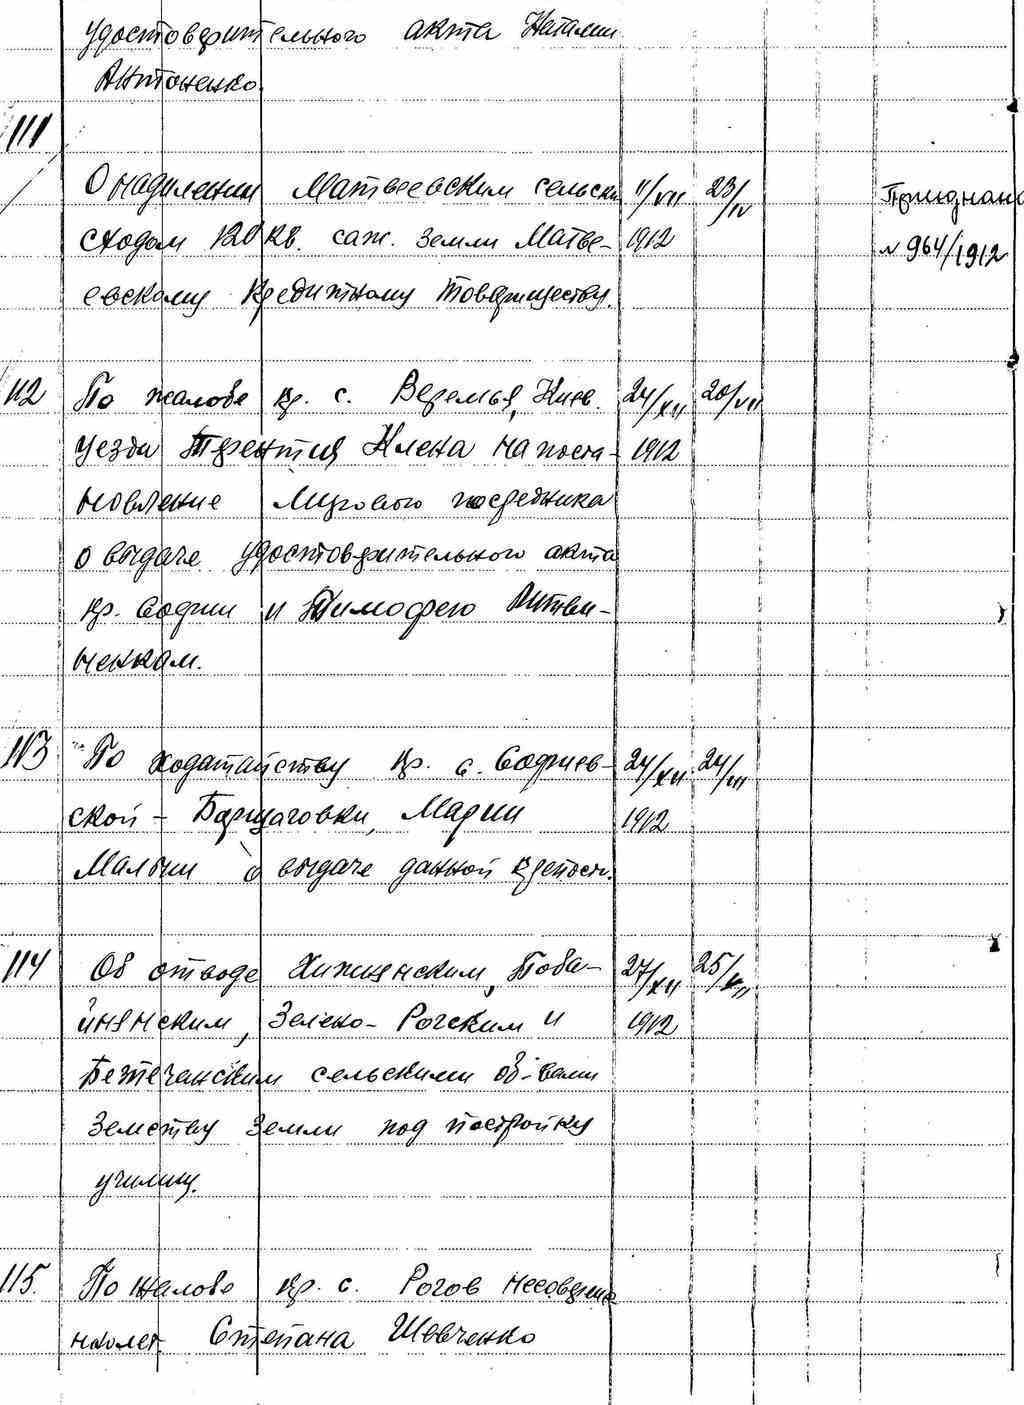 удостоверительного акта Наталии
Антоненко.
111
О наделении Матвеевским сельски 11/VII 23/IV Присоединено
сходом 120 кв. саж. земли Матве- 1912 N 964/1912
евскому Кредитному товариществу.
112 По жалобе кр. с. Веремья, Киев. 24/XII 20/VII
уезда Терентия Клена на поста- 1912
новление Мирового посредника
о выдаче удостоверительного акта
кр. Софии и Тимофею Литви-
ненкам.
113 По ходатайству кр. с. Софиев- 24/XII 24/III
ской - Борщаговки, Марии 1912
о выдаче данной крепости.
114 Об отводе Хижинским, 27/XII 25/VII
Зелено-Рогским и 1912
сельскими об-вами
Земству земли под постройку
училищ.
115. По жалобе кр. с. Рогов несоверше
нолет. Степана Шевченко